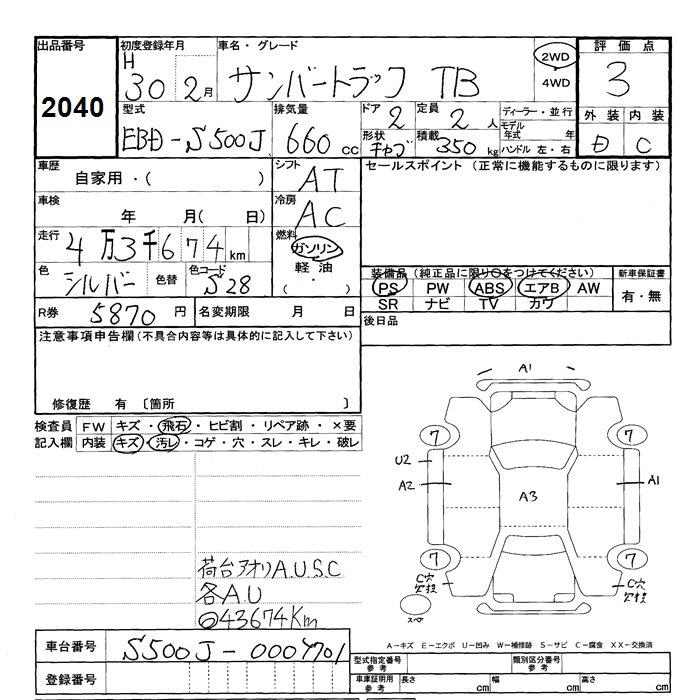 出品番号 初度登録年月 車名・グレード 評価点
2040 H 30 2月 サンバートラック TB 2WD 4WD 3
型式 排気量 ドア 定員 ディーラー・並行 外装 内装
EBD-S500J 660cc 2 2人 モデル年式 年 D C
形状 キャブ 積載 350kg ハンドル 左・右
車歴 シフト セールスポイント(正常に機能するものに限ります)
自家用・( ) AT
車検 冷房
年 月( 日) AC
走行 燃料
4万3千674km ガソリン
色 色替 色コード 軽油 装備品(純正品に限り○をつけてください) 新車保証書
シルバー S28 (・) PS PW ABS エアB AW 有・無
SR ナビ TV カワ
R券 5870円 名変期限 月 日 後日品
注意事項申告欄(不具合内容等は具体的に記入して下さい)
修復歴 有 〔箇所 〕
検査員 FW キズ・飛石・ヒビ割・リペア跡・×要
記入欄 内装 キズ・汚レ・コゲ・穴・スレ・キレ・破レ
A1
7 7
U2
A2 A3 A1
7 7
C穴 欠損 C穴 欠損
スペア
荷台アオリA.U.S.C
各A.U
○43674Km
A-キズ E-エクボ U-凹み W-補修跡 S-サビ C-腐食 XX-交換済
車台番号 S500J-0004701
型式指定番号 参考 類別区分番号 参考
登録番号 車庫証明用 参考 長さ cm 幅 cm 高さ cm